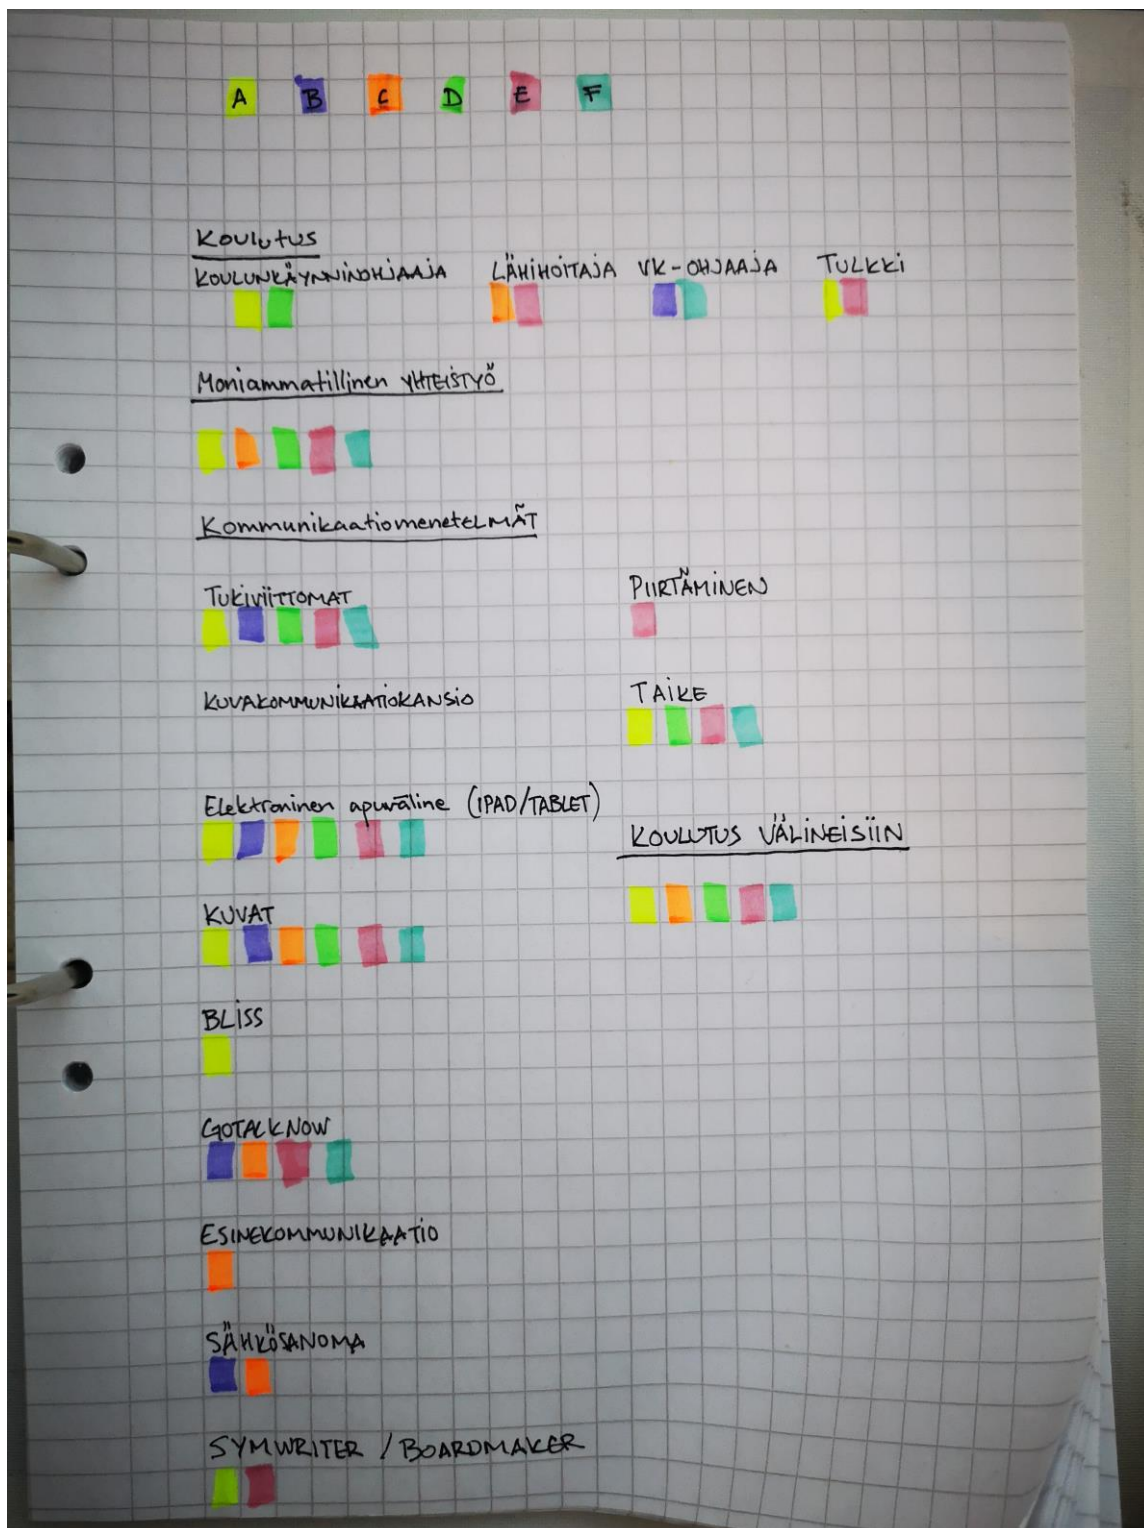 A B C D E F
Koulutus
KOULUNKÄYNNINOHJAAJA LÄHIHOITAJA VK-OHJAAJA TULKKI
Moniammatillinen YHTEISTYÖ
KommunikaatiomenetELMÄT
TUKIVIITTOMAT
KUVAKOMMUNIKAATIOKANSIO
Elektroninen apuväline (IPAD/TABLET)
KUVAT
BLISS
GOTALKNOW
ESINEKOMMUNIKAATIO
SÄHKÖSANOMA
SYMWRITER / BOARDMAKER
PIIRTÄMINEN
TAIKE
KOULUTUS VÄLINEISIIN